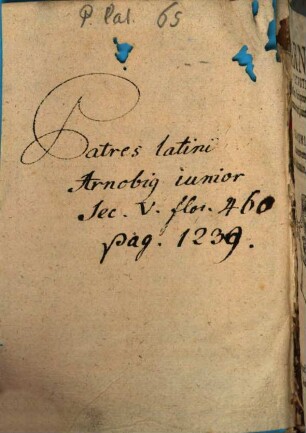 P. lat. 65
Patres latini
Arnobiq iunior
Sec. V. flor. 460
pag. 1239.